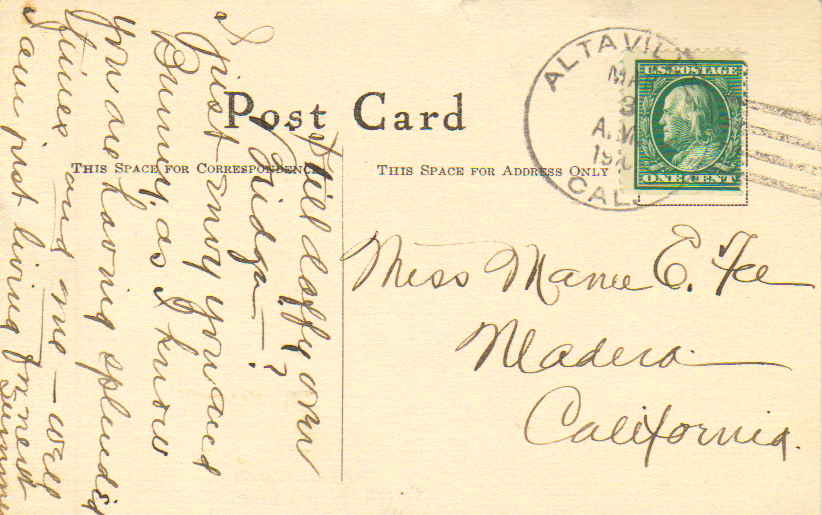 Post Card
THIS SPACE FOR CORRESPONDENCE
THIS SPACE FOR ADDRESS ONLY
ALTAVIL
MA
3
A.M
191
CAL
U.S. POSTAGE
ONE CENT
Still daffy over
Bridge—?
I just envy you and
Bunny, as I know
you are having splendid
times and me — well
I am just living for next
Summer
Miss E. Fee
Madera
California.